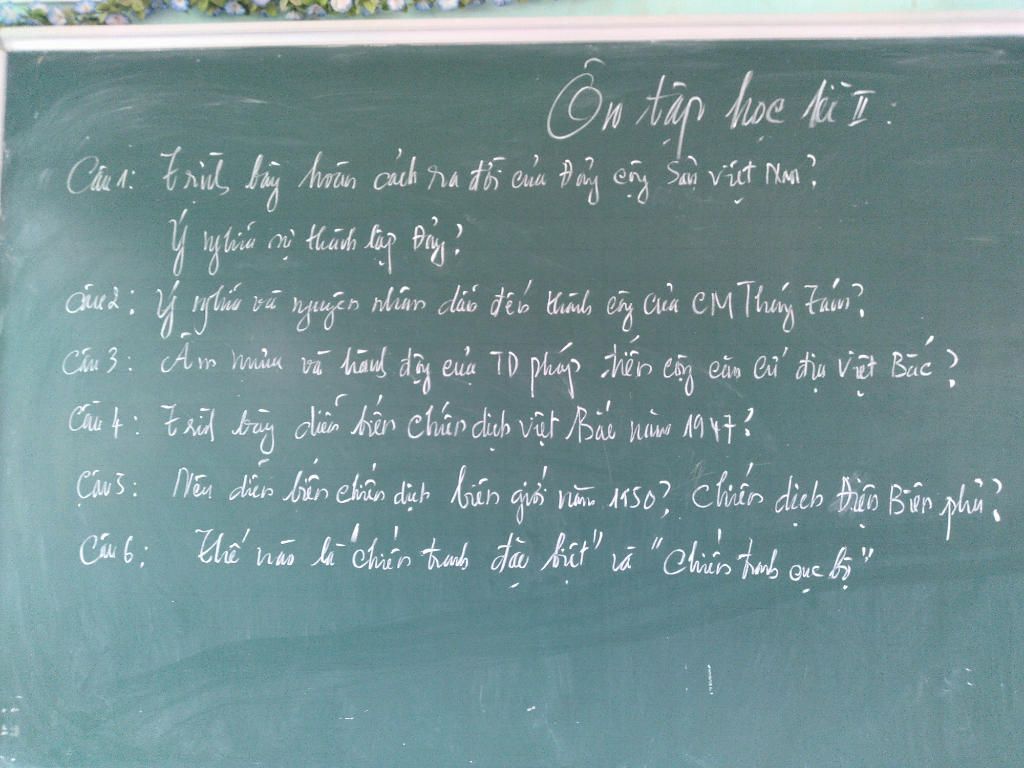 Ôn tập học kì II:
Câu 1: Trình bày hoàn cảnh ra đời của Đảng cộng Sản Việt Nam?
Ý nghĩa sự thành lập Đảng?
Câu 2: Ý nghĩa và nguyên nhân dẫn đến thành công của CM Tháng Tám?
Câu 3: Âm mưu và hành động của TD pháp tiến công căn cứ địa Việt Bắc?
Câu 4: Trình bày diễn biến chiến dịch Việt Bắc năm 1947?
Câu 5: Nêu diễn biến chiến dịch biên giới năm 1950? Chiến dịch Điện Biên phủ?
Câu 6: Thế nào là "chiến tranh đặc biệt" và "Chiến tranh cục bộ"